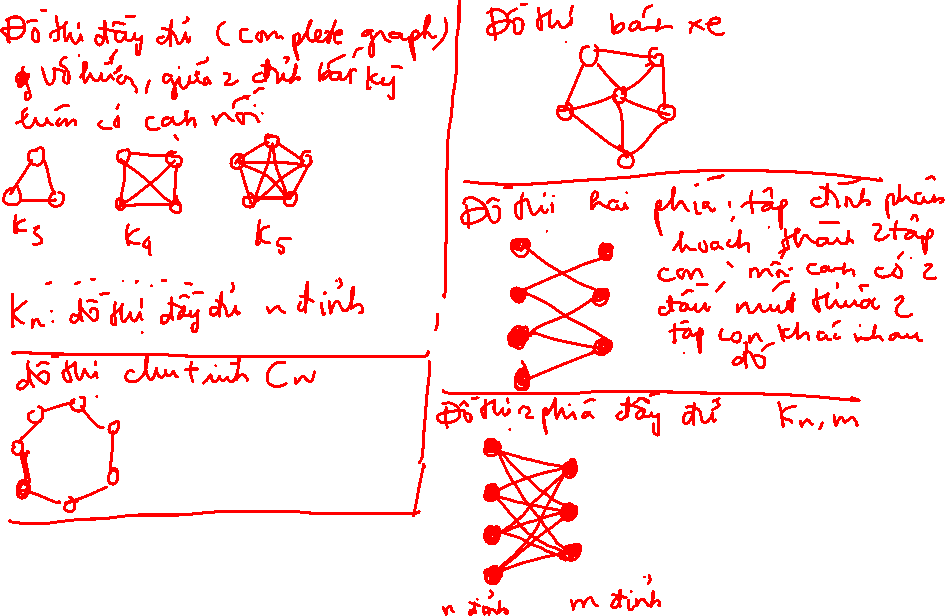 Đồ thị đầy đủ (complete graph)
vô hướng, giữa 2 đỉnh bất kỳ
luôn có cạnh nối
K3 K4 K5
Kn: đồ thị đầy đủ n đỉnh
đồ thị chu trình Cn
Đồ thị bánh xe
Đồ thị hai phía: tập đỉnh phân
hoạch thành 2 tập
con, mỗi cạnh có 2
đầu mút thuộc 2
tập con khác nhau
đó
Đồ thị 2 phía đầy đủ Kn,m
n đỉnh m đỉnh